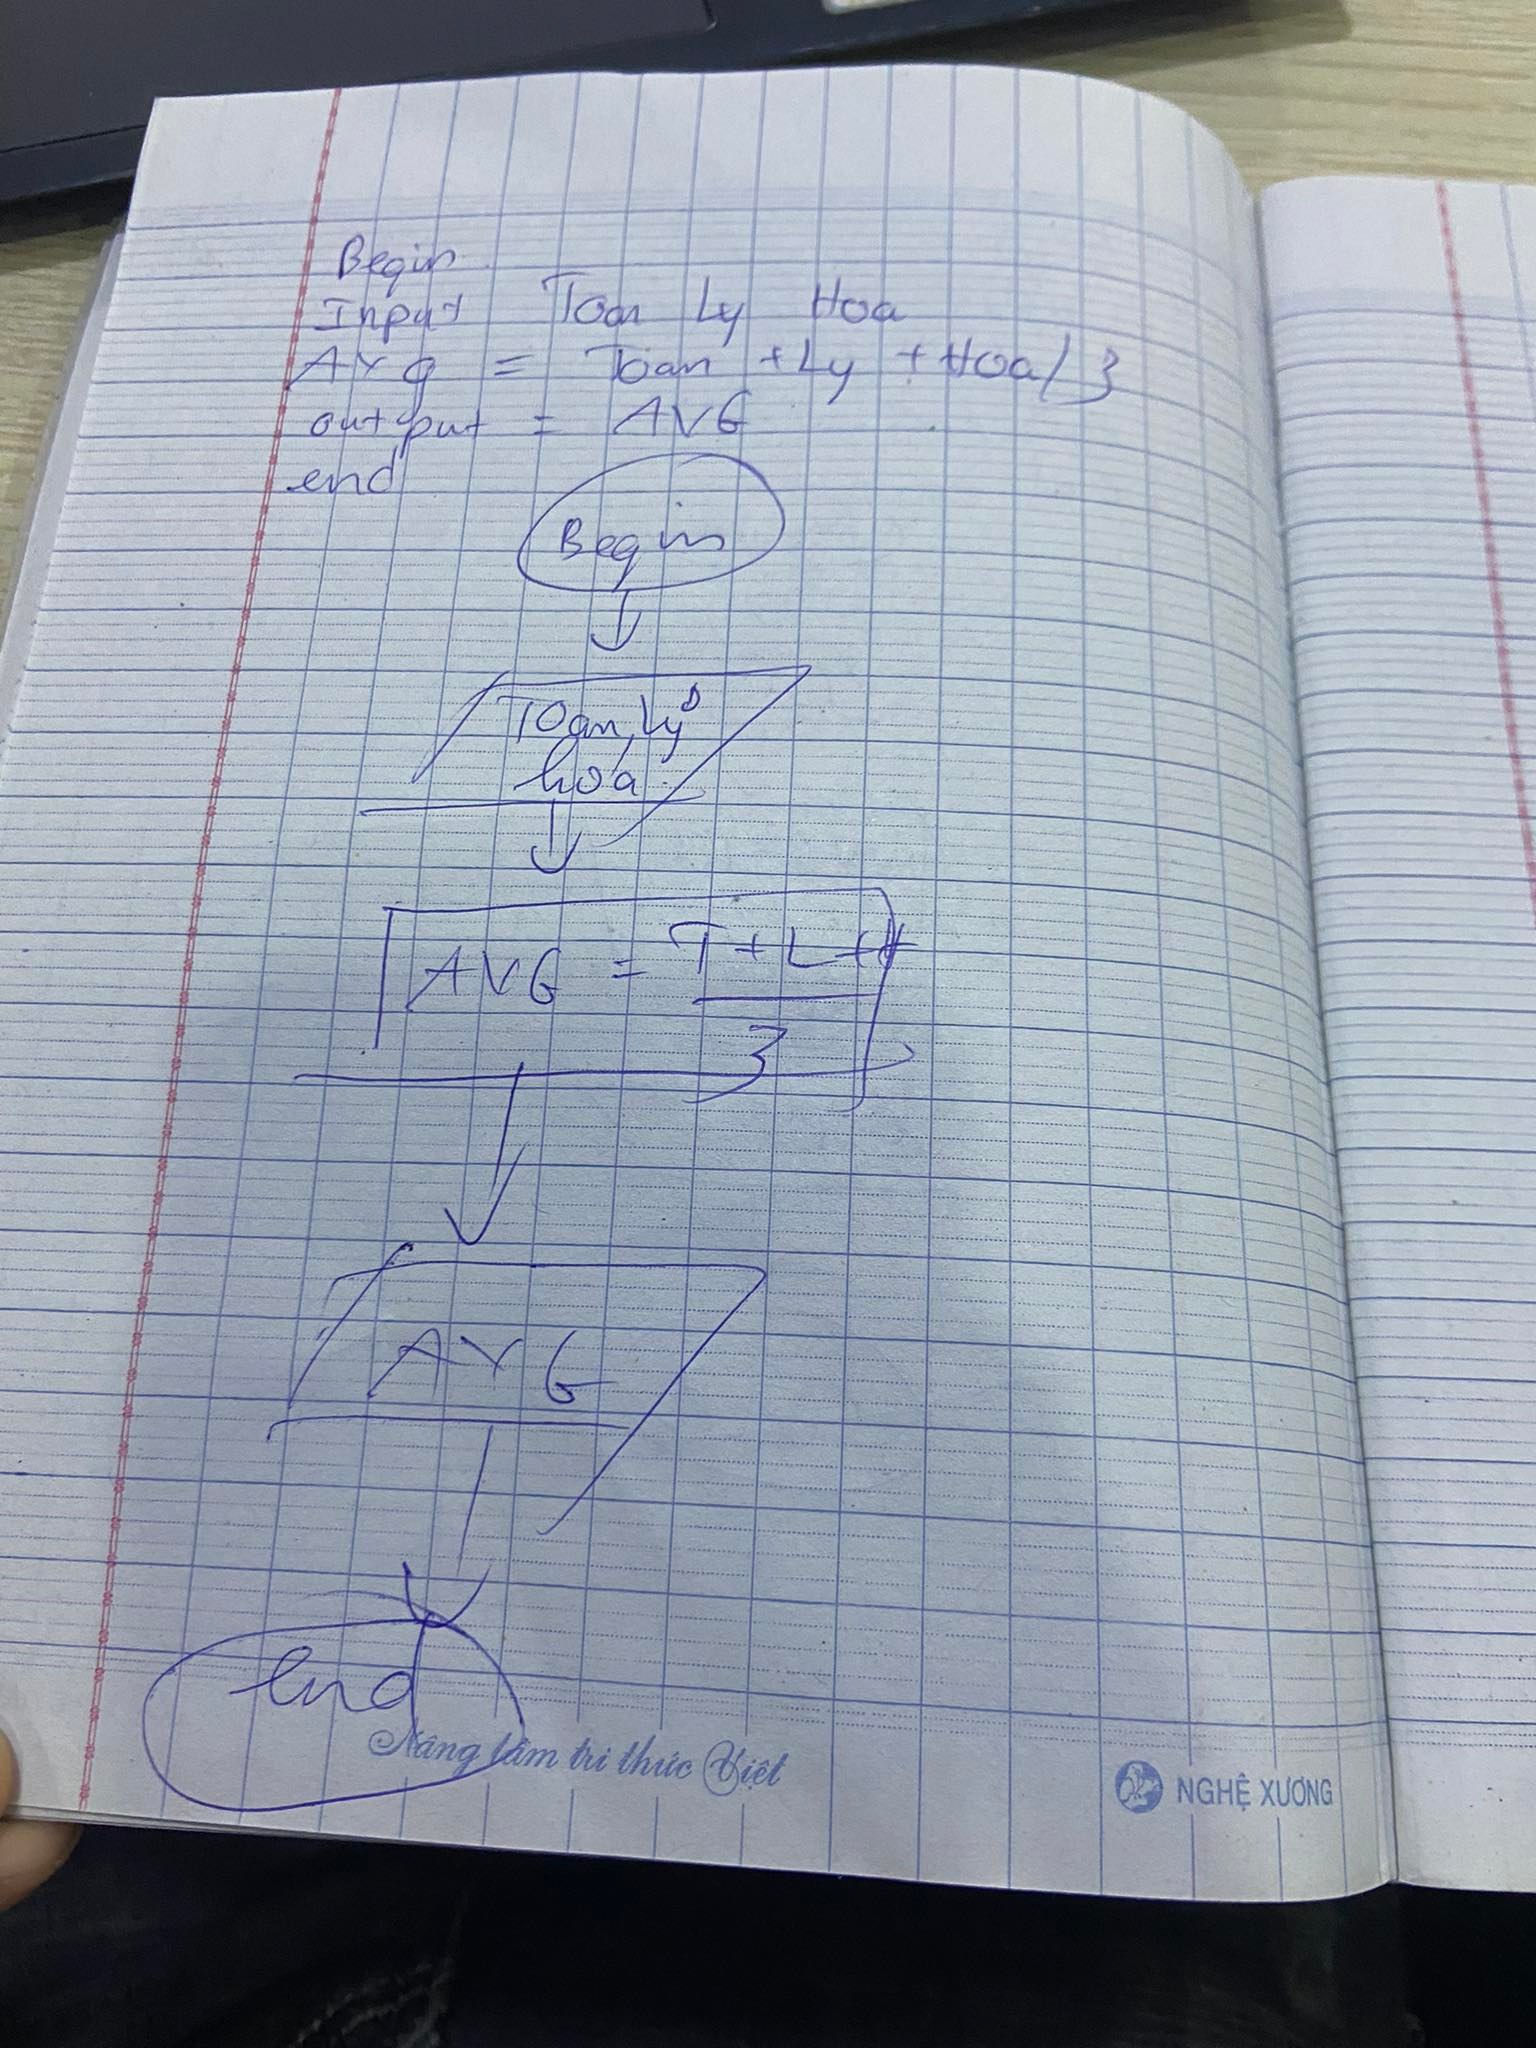 Begin
Input Toan Ly Hoa
AVG = Toan + Ly + Hoa / 3
output = AVG
end
Begin
Toan, Ly,
hoa
AVG = T + L + H
3
AVG
end
Nâng tầm tri thức Việt
NGHỆ XƯƠNG